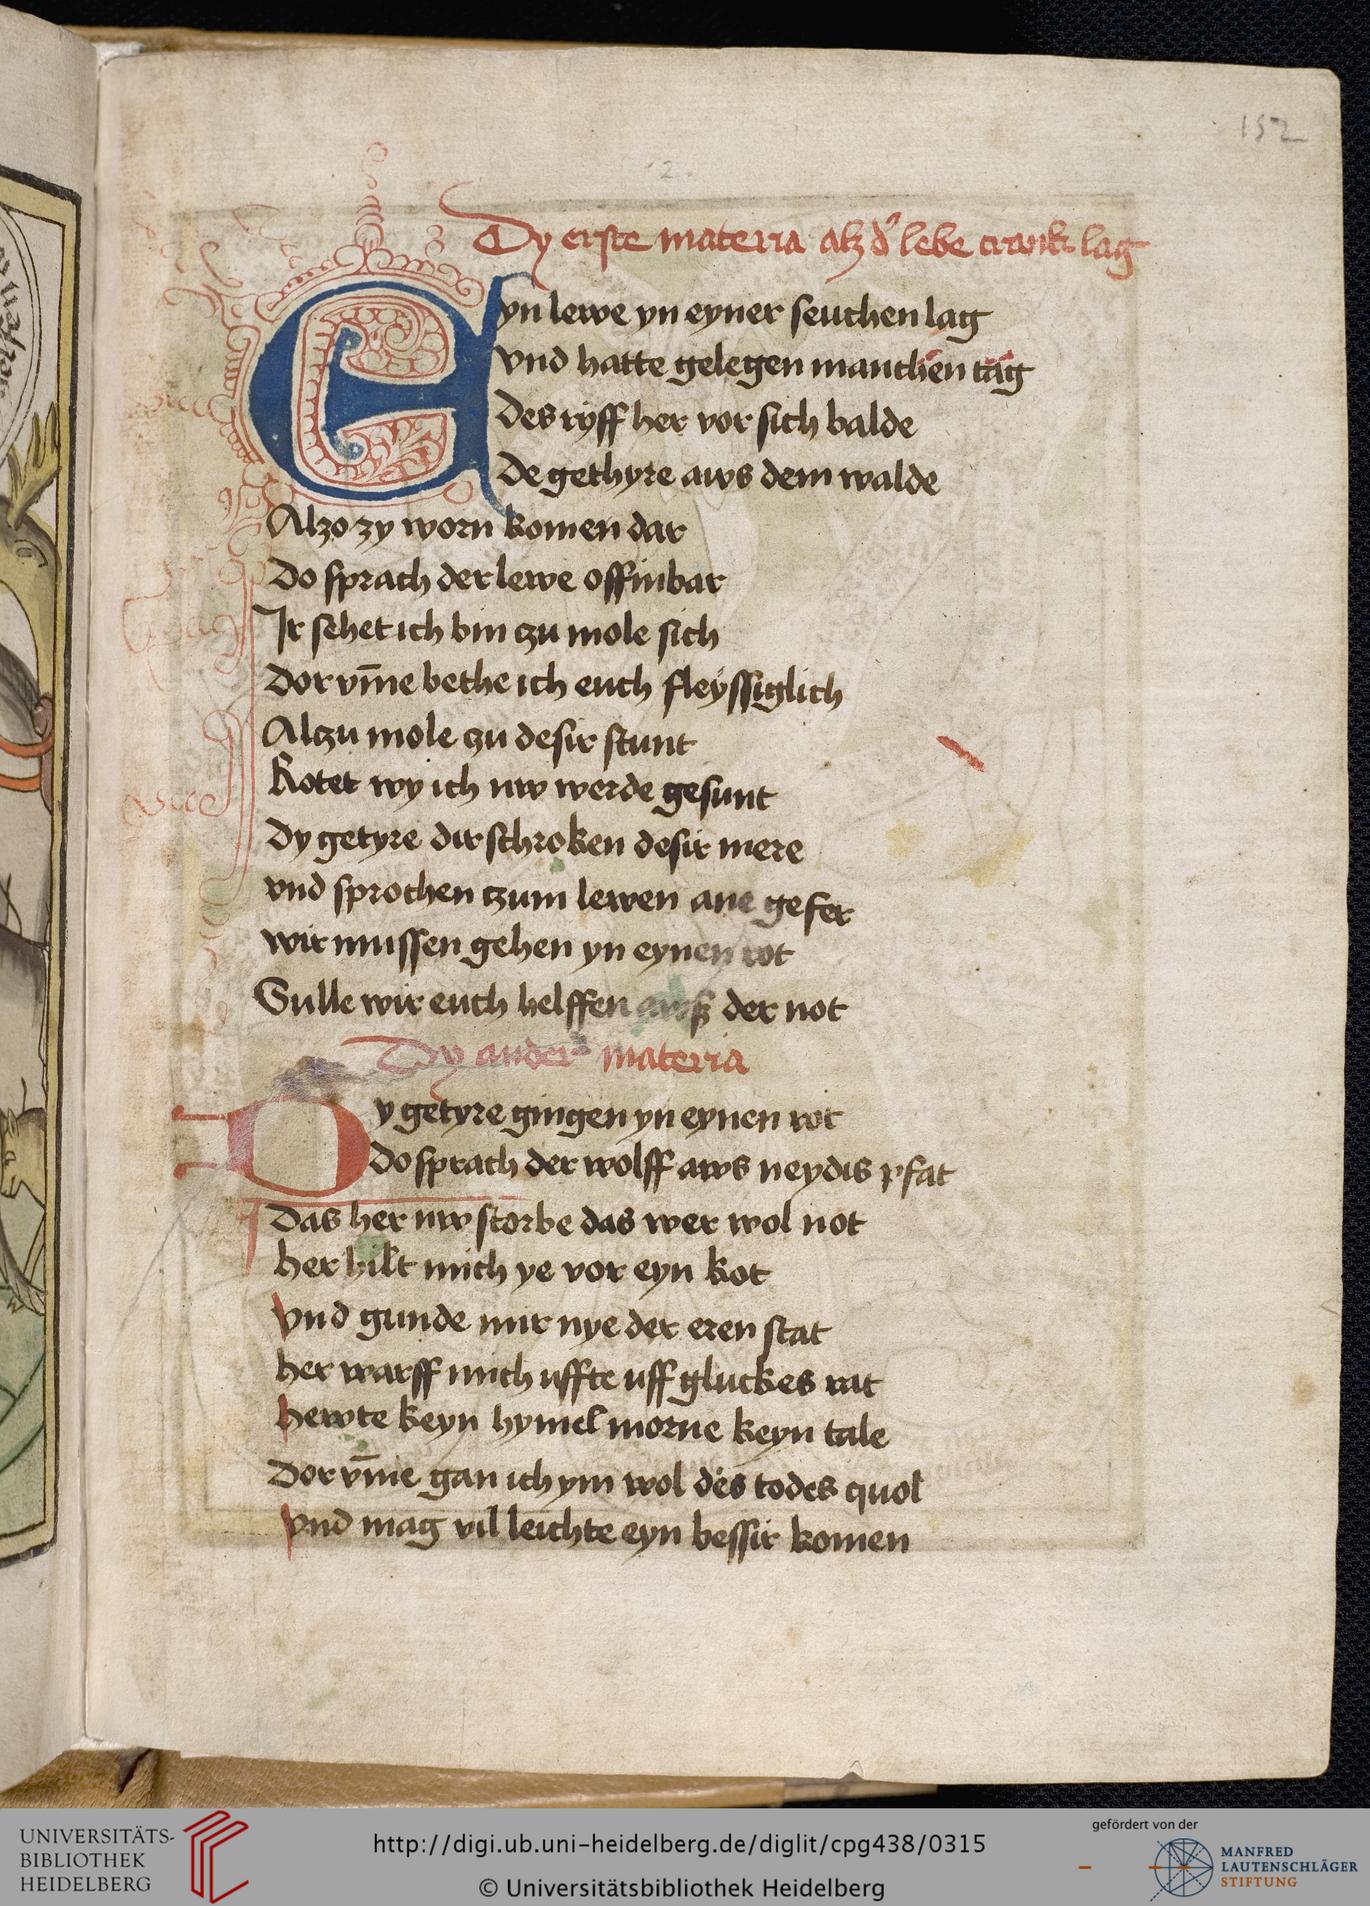 152
2.
Dy erste materia alz d' lebe crank lag
Eyn lewe yn eyner seuchen lag
vnd hatte gelegen manchen tag
Des ryff her vor sich balde
De gethyre aws dem walde
Alzo zy worn komen dar
Do sprach der lewe offinbar
Ir sehet ich bin czu mole sich
Dor vm̄e bethe ich euch fleyssiglich
Alczu mole czu desir stunt
Rotet wy ich nw werde gesunt
Dy getyre dirschroken desir mere
vnd sprochen czum lewen ane gefer
wir mussen gehen yn eynen rot
Sulle wir euch helffen awsz der not
Dy ander materia
Dy getyre gingen yn eynen rot
Do sprach der wolff aws neydis pfat
Das her nw storbe das wer wol not
her hilt mich ye vor eyn kot
vnd gunde mir nye der eren stat
her warff mich uffte uff gluckes rat
hewte keyn hymel morne keyn tale
Dor vm̄e gan ich ym wol des todes quol
vnd mag vil leichte eyn bessir komen
UNIVERSITÄTS-
BIBLIOTHEK
HEIDELBERG
http://digi.ub.uni-heidelberg.de/diglit/cpg438/0315
© Universitätsbibliothek Heidelberg
gefördert von der
MANFRED
LAUTENSCHLÄGER
STIFTUNG